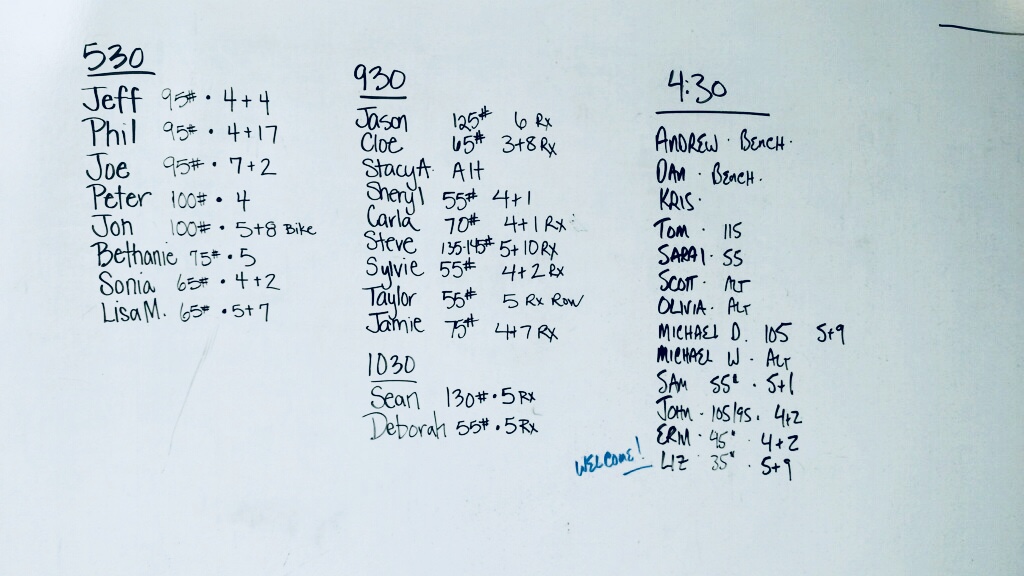 530
Jeff 95# · 4+4
Phil 95# · 4+17
Joe 95# · 7+2
Peter 100# · 4
Jon 100# · 5+8 Bike
Bethanie 75# · 5
Sonia 65# · 4+2
Lisa M. 65# · 5+7
930
Jason 125# 6 Rx
Cloe 65# 3+8 Rx
Stacy A. Alt
Sheryl 55# 4+1
Carla 70# 4+1 Rx
Steve 135-145# 5+10 Rx
Sylvie 55# 4+2 Rx
Taylor 55# 5 Rx Row
Jamie 75# 4+7 Rx
1030
Sean 130# · 5 Rx
Deborah 55# · 5 Rx
4:30
ANDREW · BENCH·
DAN · BENCH.
KRIS·
TOM · 115
SARAI · 55
SCOTT · ALT
OLIVIA · ALT
MICHAEL D. 105 5+9
MICHAEL W · ALT
SAM 55# · 5+1
JOHN · 105/95 · 4+2
ERIN · 45# · 4+2
WELCOME! LIZ · 35# · 5+9